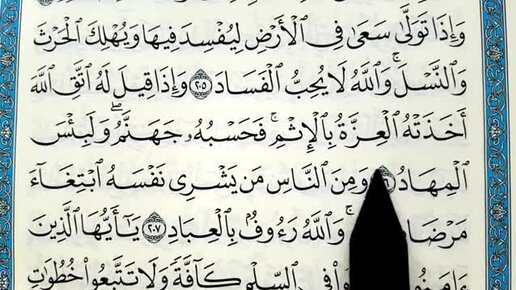 وَإِذَا تَوَلَّىٰ سَعَىٰ فِي ٱلْأَرْضِ لِيُفْسِدَ فِيهَا وَيُهْلِكَ ٱلْحَرْثَ
وَٱلنَّسْلَۚ وَٱللَّهُ لَا يُحِبُّ ٱلْفَسَادَ ٢٠٥ وَإِذَا قِيلَ لَهُ ٱتَّقِ ٱللَّهَ
أَخَذَتْهُ ٱلْعِزَّةُ بِٱلْإِثْمِۚ فَحَسْبُهُۥ جَهَنَّمُۖ وَلَبِئْسَ
ٱلْمِهَادُ وَمِنَ ٱلنَّاسِ مَن يَشْرِي نَفْسَهُ ٱبْتِغَآءَ
وَٱللَّهُ رَءُوفٌۢ بِٱلْعِبَادِ ٢٠٧ يَٰٓأَيُّهَا ٱلَّذِينَ
فِي ٱلسِّلْمِ كَآفَّةً وَلَا تَتَّبِعُوا۟ خُطُوَٰتِ